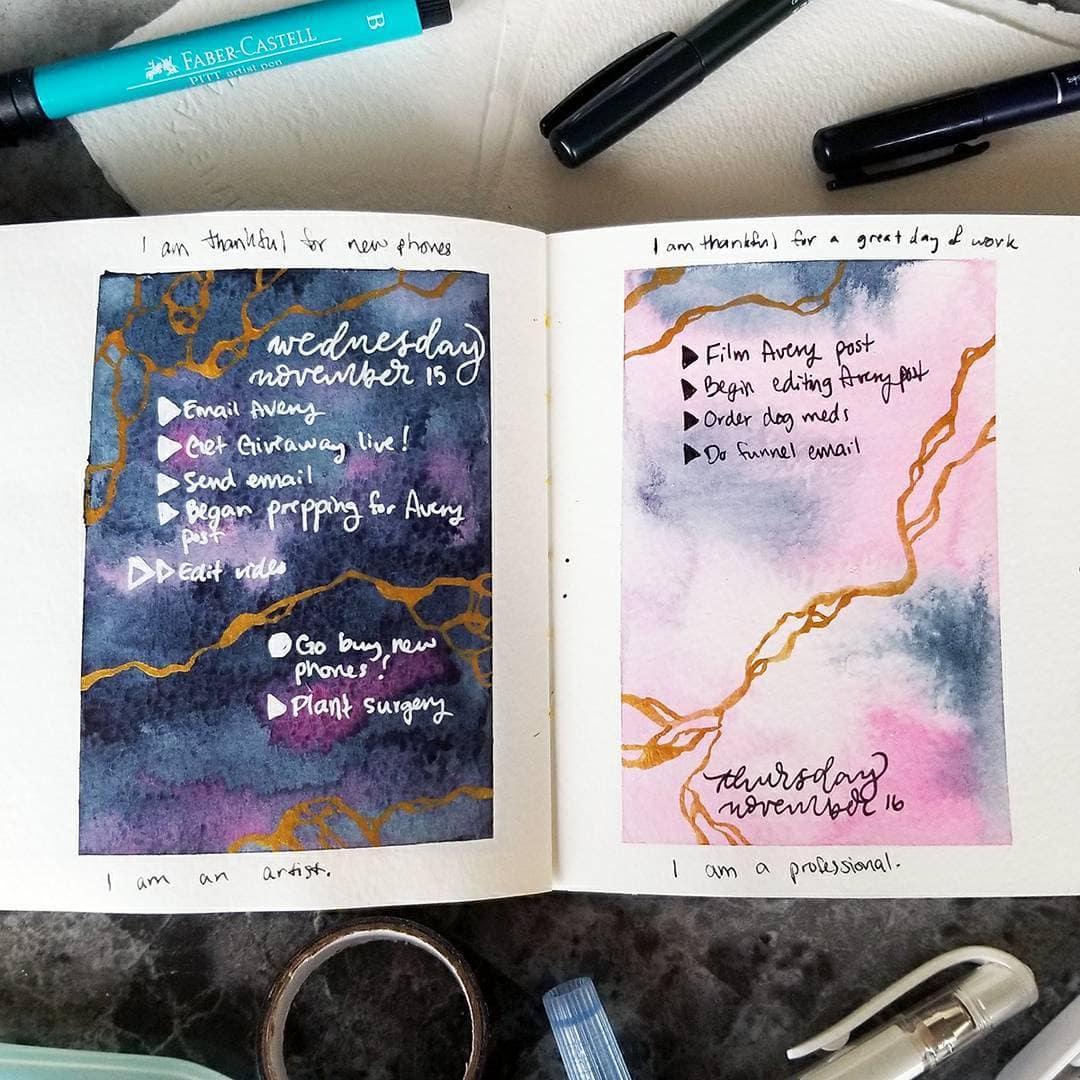 B
FABER-CASTELL
PITT artist pen
I am thankful for new phones
wednesday
november 15
Email Avery
Get Giveaway live!
Send email
Began prepping for Avery
post
Edit video
Go buy new
phones!
Plant surgery
I am an artist.
I am thankful for a great day of work
Film Avery post
Begin editing Avery post
Order dog meds
Do funnel email
thursday
november 16
I am a professional.